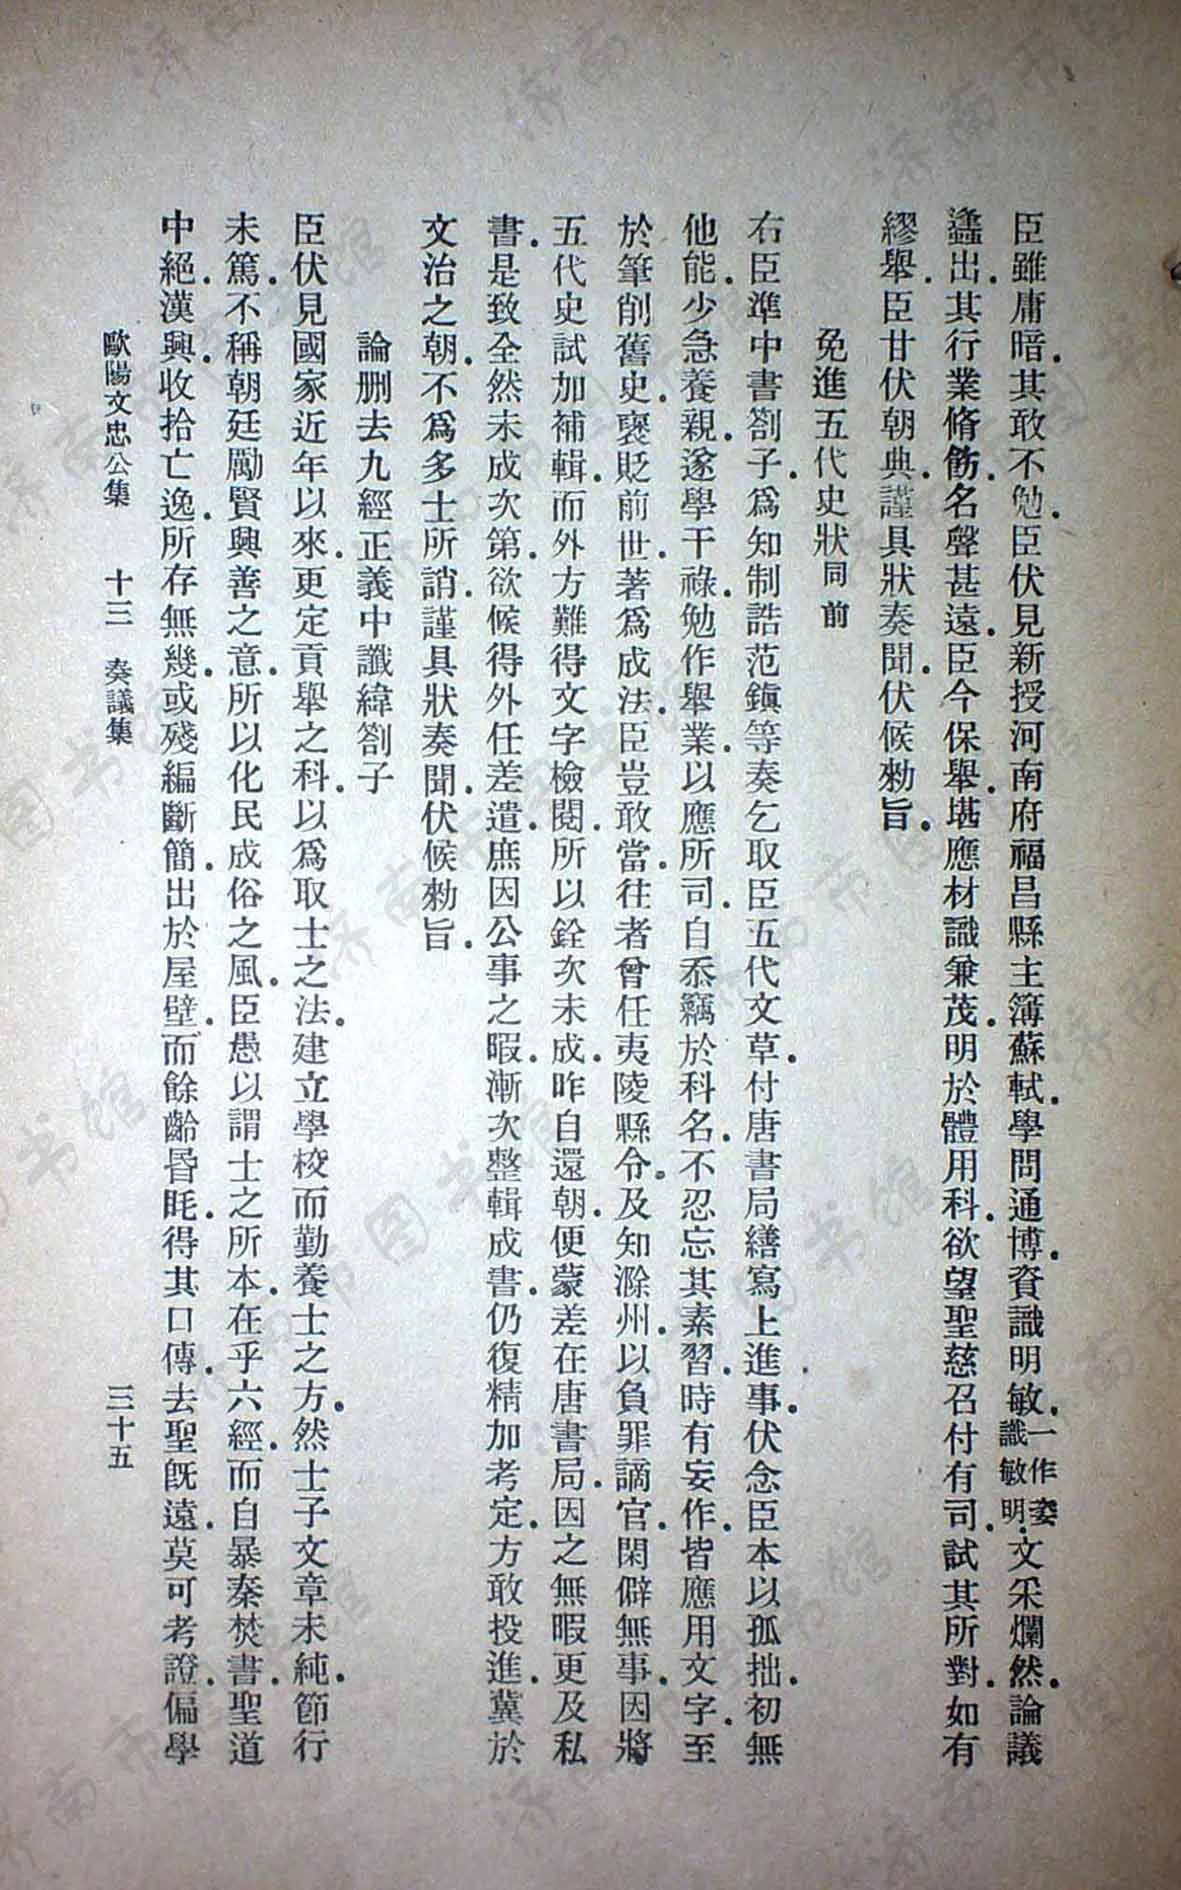 臣雖庸暗.其敢不勉.臣伏見新授河南府福昌縣主簿蘇軾.學問通博.資識明敏.一作姿識敏明.文采爛然.論議
蠭出.其行業脩飭.名聲甚遠.臣今保舉.堪應材識兼茂.明於體用科.欲望聖慈召付有司.試其所對.如有
繆舉.臣甘伏朝典.謹具狀奏聞.伏候勑旨.
免進五代史狀同前
右臣準中書劄子.爲知制誥范鎭等奏乞取臣五代文草.付唐書局繕寫上進事.伏念臣本以孤拙.初無
他能.少急養親.遂學干祿.勉作舉業.以應所司.自忝竊於科名.不忍忘其素習.時有妄作.皆應用文字.至
於筆削舊史.褒貶前世.著爲成法.臣豈敢當.往者曾任夷陵縣令.及知滁州.以負罪謫官.閑僻無事.因將
五代史試加補輯.而外方難得文字檢閱.所以銓次未成.昨自還朝.便蒙差在唐書局.因之無暇更及私
書.是致全然未成次第.欲候得外任差遣.庶因公事之暇.漸次整輯成書.仍復精加考定.方敢投進.冀於
文治之朝.不爲多士所誚.謹具狀奏聞.伏候勑旨.
論删去九經正義中讖緯劄子
臣伏見國家近年以來.更定貢舉之科.以爲取士之法.建立學校而勤養士之方.然士子文章未純.節行
未篤.不稱朝廷勵賢興善之意.所以化民成俗之風.臣愚以謂士之所本.在乎六經.而自暴秦焚書.聖道
中絕.漢興.收拾亡逸.所存無幾.或殘編斷簡.出於屋壁.而餘齡昬眊.得其口傳.去聖旣遠.莫可考證.偏學
歐陽文忠公集 十三 奏議集 三十五
濟南市图书馆